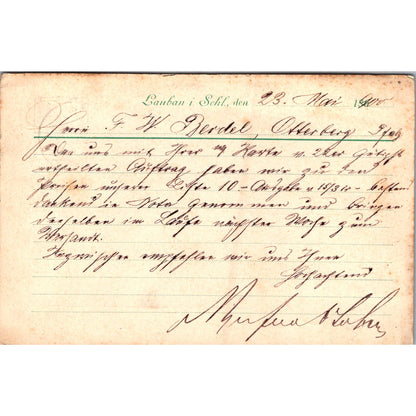 Lauban i. Schl., den 23. Mai 1900
Herrn F W Berdel, Otterberg Pfalz
Den uns mit Ihrer Karte v. 22er
ertheilten Auftrag haben wir zu den
Preisen unserer Liste 10 - Ausgabe v. bestens
dankend in Nota genommen und bringen
denselben im Laufe nächster Woche zum
Versandt.
Inzwischen empfehlen wir uns Ihnen
Hochachtend